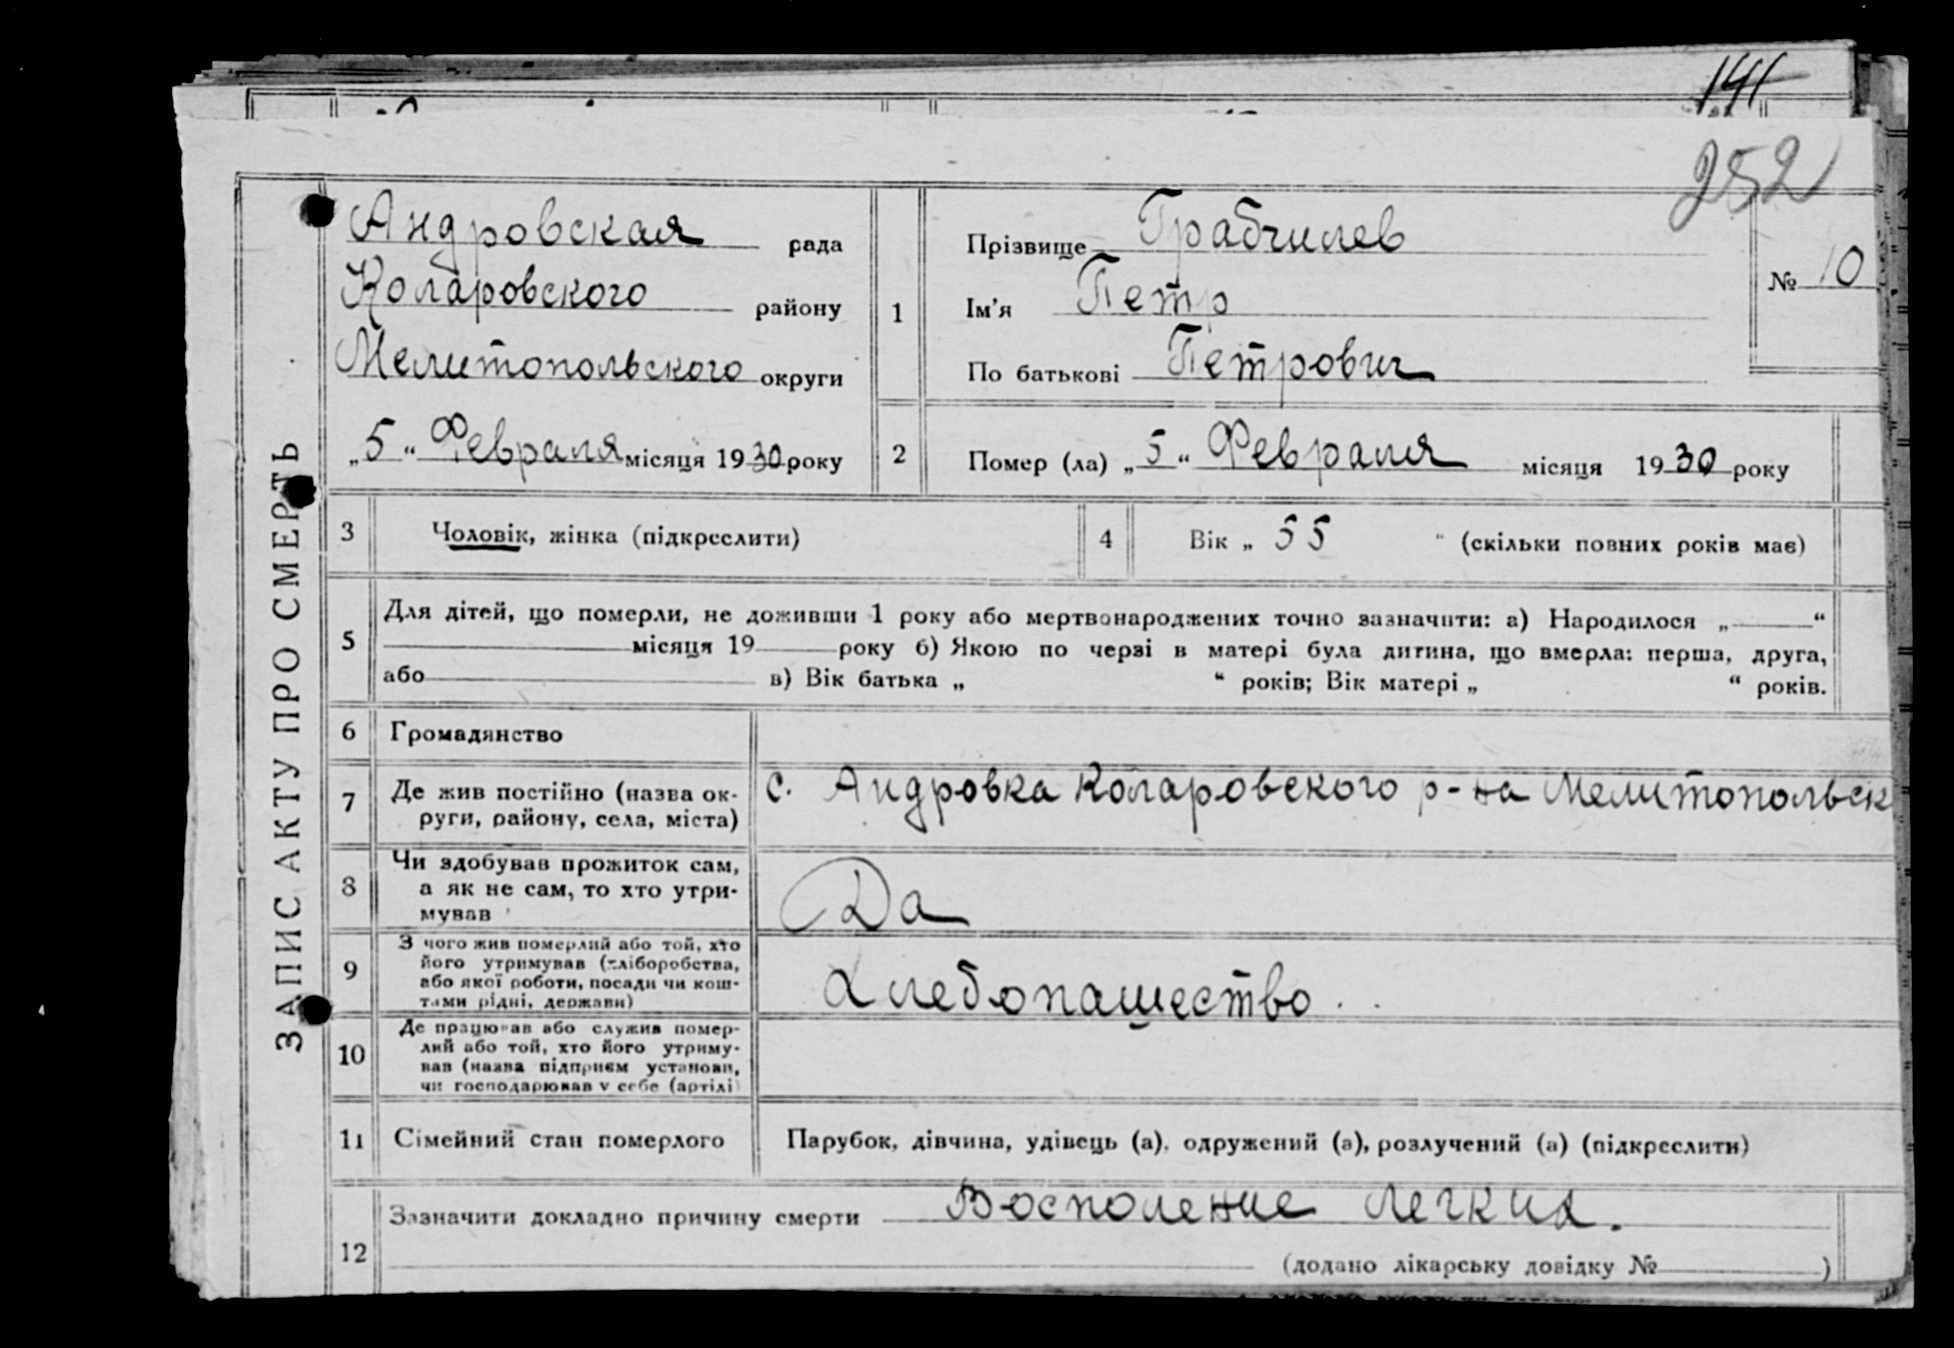 141
252
ЗАПИС АКТУ ПРО СМЕРТЬ
Андровская рада
Коларовского району
Мелитопольского округи
„5“ Февраля місяця 1930 року
1
Прізвище Грабчилев
Ім'я Петр
По батькові Петрович
№ 10
2
Помер (ла) „5“ Февраля місяця 1930 року
3
Чоловік, жінка (підкреслити)
4
Вік „ 55 “ (скільки повних років має)
5
Для дітей, що померли, не доживши 1 року або мертвонароджених точно зазначити: а) Народилося „ “
місяця 19 року б) Якою по черзі в матері була дитина, що вмерла: перша, друга,
або в) Вік батька „ “ років; Вік матері „ “ років.
6
Громадянство
7
Де жив постійно (назва ок-
руги, району, села, міста)
с. Андровка Коларовского р-на Мелитопольск
8
Чи здобував прожиток сам,
а як не сам, то хто утри-
мував
Да
9
З чого жив померлий або той, хто
його утримував (хліборобства,
або якої роботи, посади чи кош-
тами рідні, держави)
Хлебопашество.
10
Де працював або служив помер-
лий або той, хто його утриму-
вав (назва підприєм установи,
чи господарював у себе (артілі)
11
Сімейний стан померлого
Парубок, дівчина, удівець (а), одружений (а), розлучений (а) (підкреслити)
12
Зазначити докладно причину смерти Восполение легких.
(додано лікарську довідку № )